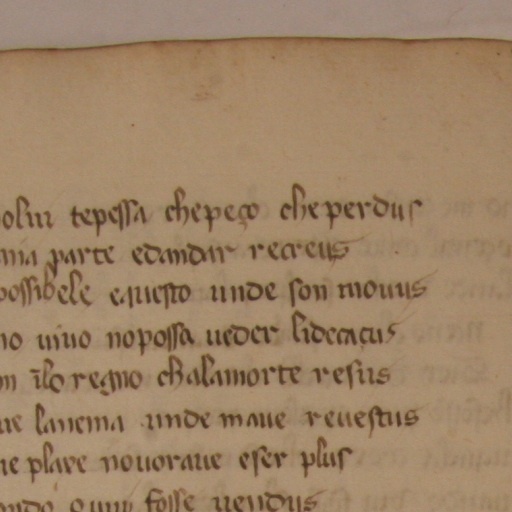 colui tepessa chepeço cheperdus
parte edandar recreus
possibele equesto unde son mouus
uiuo nopossa ueder lidecaçus
regno chalamorte resus
lauema unde maue reuestus
plaxe nouoraue eser plus
fosse uendus